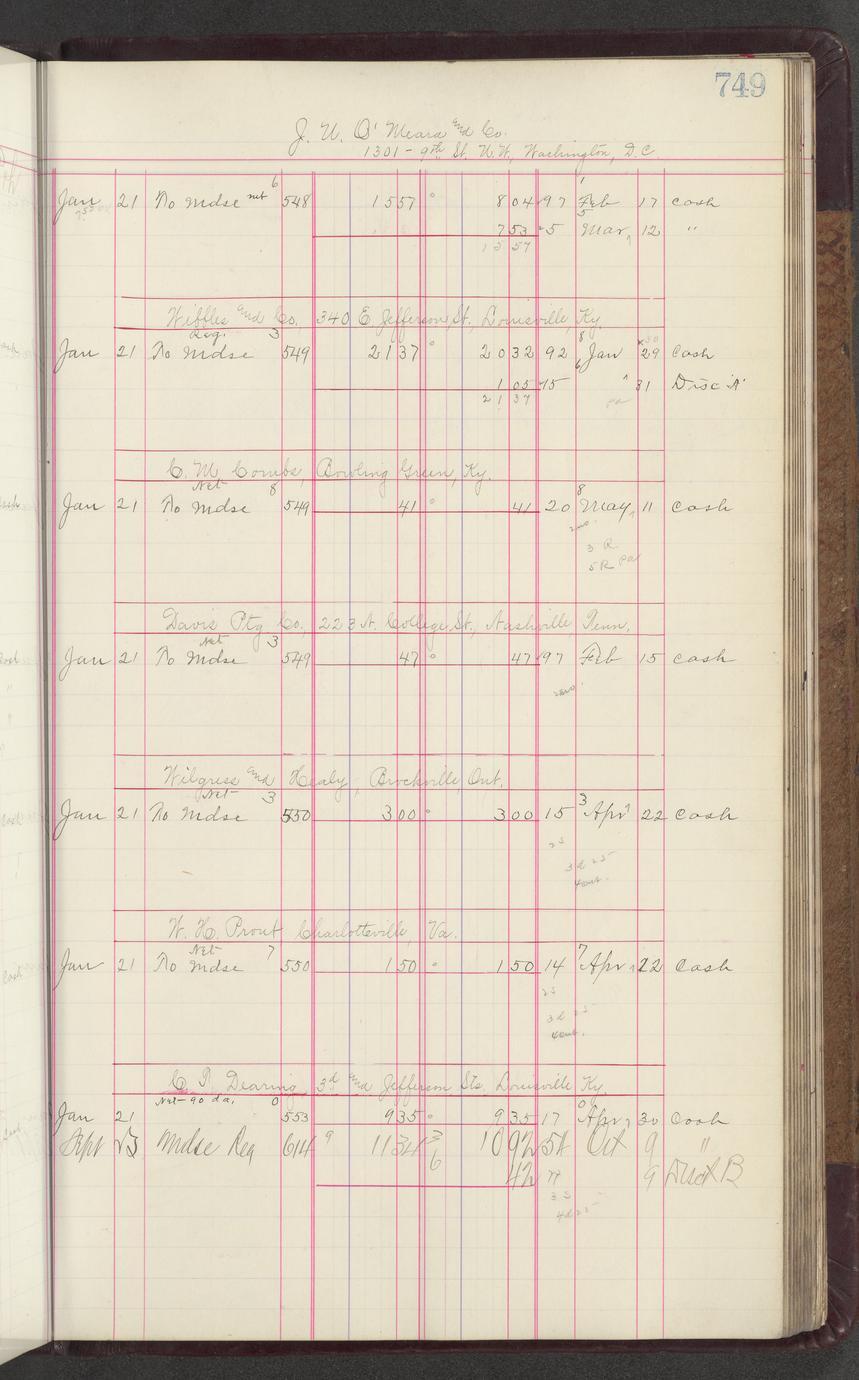 749
J. U. O'Meara and Co.
1301 - 9th St. N.W., Washington, D.C.
Jan 21 To Mdse net 6 548 1557 ° 804 97 1 Feb 17 Cash
753 5 5 Mar, 12 "
1557
Wibbles and Co, 340 E. Jefferson St., Louisville, Ky.
Reg. 3
Jan 21 To Mdse 549 2137 ° 2032 92 8 Jan 29 Cash
105 75 6 " 31 Disc "A"
2137
C. M. Combs, Bowling Green, Ky.
Net 8
Jan 21 To Mdse 549 41 ° 41 20 8 May, 11 Cash
3 R
5 R pd
Davis Ptg Co., 223 N. College St., Nashville Tenn.
Net 3
Jan 21 To Mdse 549 47 ° 47 97 Feb 15 Cash
Wilgress and Healy, Brockville, Ont.
Net 3
Jan 21 To Mdse 550 300 ° 300 15 3 Apr 22 Cash
25
3d 25
4 out.
W. H. Prout Charlotteville, Va.
Net 7
Jan 21 To Mdse 550 150 ° 150 14 7 Apr, 22 Cash
25
3d 25
4 out.
C. T. Dearing, 3d and Jefferson Sts, Louisville Ky.
Net - 90 da. 0
Jan 21 553 935 ° 935 17 0 Apr, 30 Cash
Sept 23 Mdse Reg 614 9 1134 3 1092 54 Oct 9 "
6 42 9 Disct B
35
4d 25